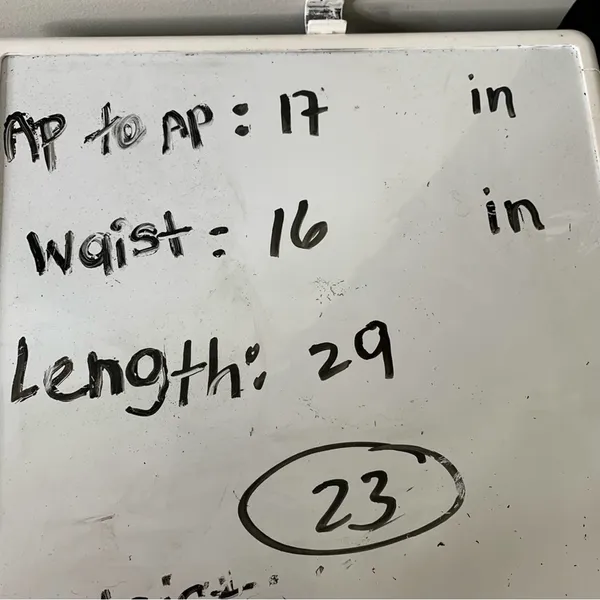 AP to AP: 17 in
Waist: 16 in
Length: 29
23